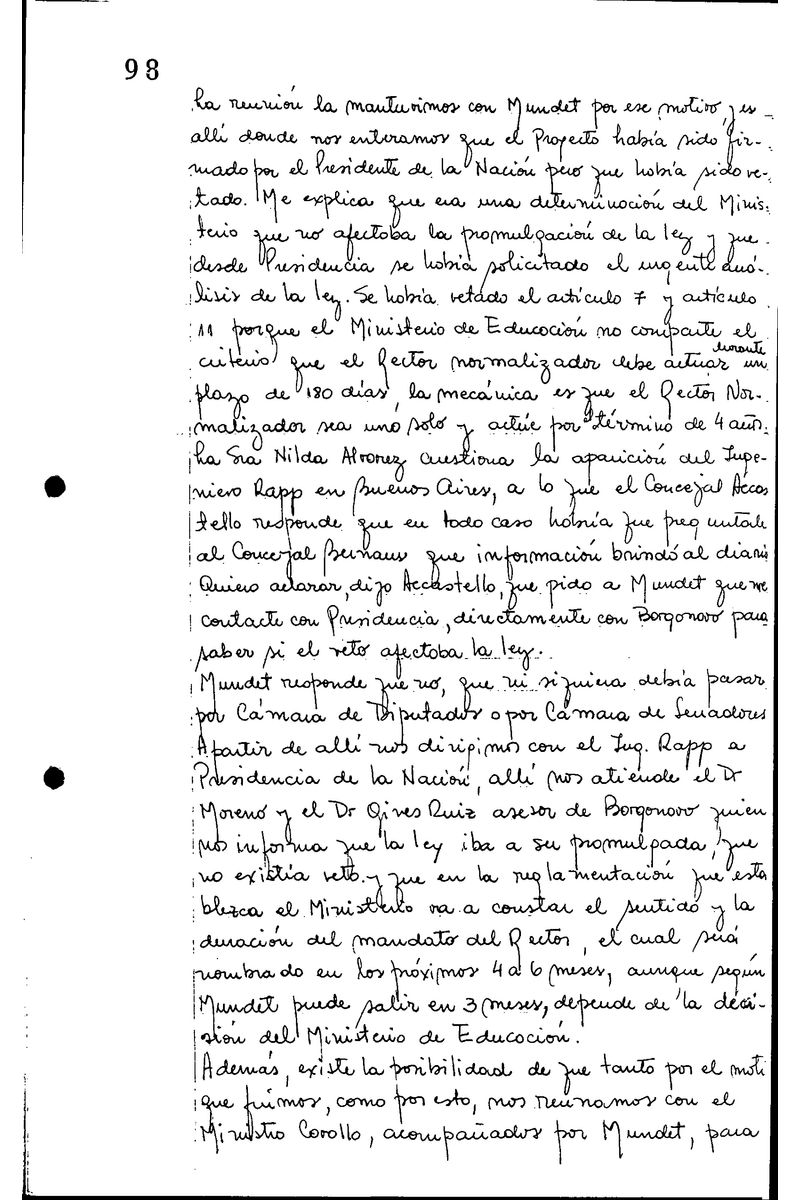 98
La reunión la mantuvimos con Mundet por ese motivo, y es
allí donde nos enteramos que el Proyecto había sido fir-
mado por el Presidente de la Nación pero que había sido ve-
tado. Me explica que era una determinación del Minis-
terio que no afectaba la promulgación de la ley y que
desde Presidencia se había solicitado el urgente aná-
lisis de la ley. Se había vetado el artículo 7 y artículo
11 porque el Ministerio de Educación no comparte el
criterio que el Rector normalizador debe actuar durante un
plazo de 180 días, la mecánica es que el Rector Nor-
malizador sea uno solo y actúe por término de 4 años.
La Sra Nilda Alvarez cuestiona la aparición del Inge-
niero Rapp en Buenos Aires, a lo que el Concejal Accas
tello responde que en todo caso habría que preguntarle
al Concejal Bernaus que información brindó al diario
Quiero aclarar, dijo Accastello, que pido a Mundet que me
contacte con Presidencia, directamente con Borgonovo para
saber si el veto afectaba la ley.
Mundet responde que no, que ni siquiera debía pasar
por Cámara de Diputados o por Cámara de Senadores
A partir de allí nos dirigimos con el Ing. Rapp a
Presidencia de la Nación, allí nos atiende el Dr
Moreno y el Dr Gives Ruiz asesor de Borgonovo quien
nos informa que la ley iba a ser promulgada, que
no existía veto y que en la reglamentación que esta
blezca el Ministerio va a constar el sentido y la
duración del mandato del Rector, el cual será
nombrado en los próximos 4 a 6 meses, aunque según
Mundet puede salir en 3 meses, depende de la deci-
sión del Ministerio de Educación.
Además, existe la posibilidad de que tanto por el moti
que fuimos, como por esto, nos reunamos con el
Ministro Corollo, acompañados por Mundet, para